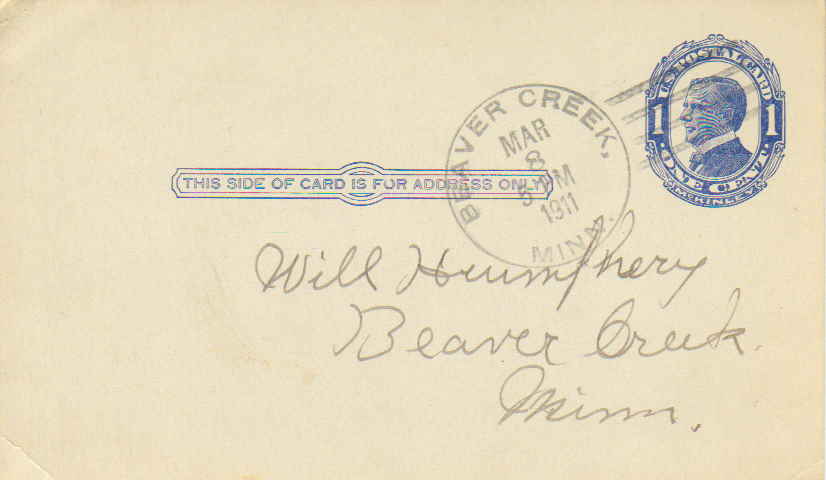 U.S. POSTAL CARD
1 1
ONE CENT
McKINLEY
BEAVER CREEK,
MAR
8
1911
MINN.
THIS SIDE OF CARD IS FOR ADDRESS ONLY
Will Humphery
Beaver Creek.
Minn.